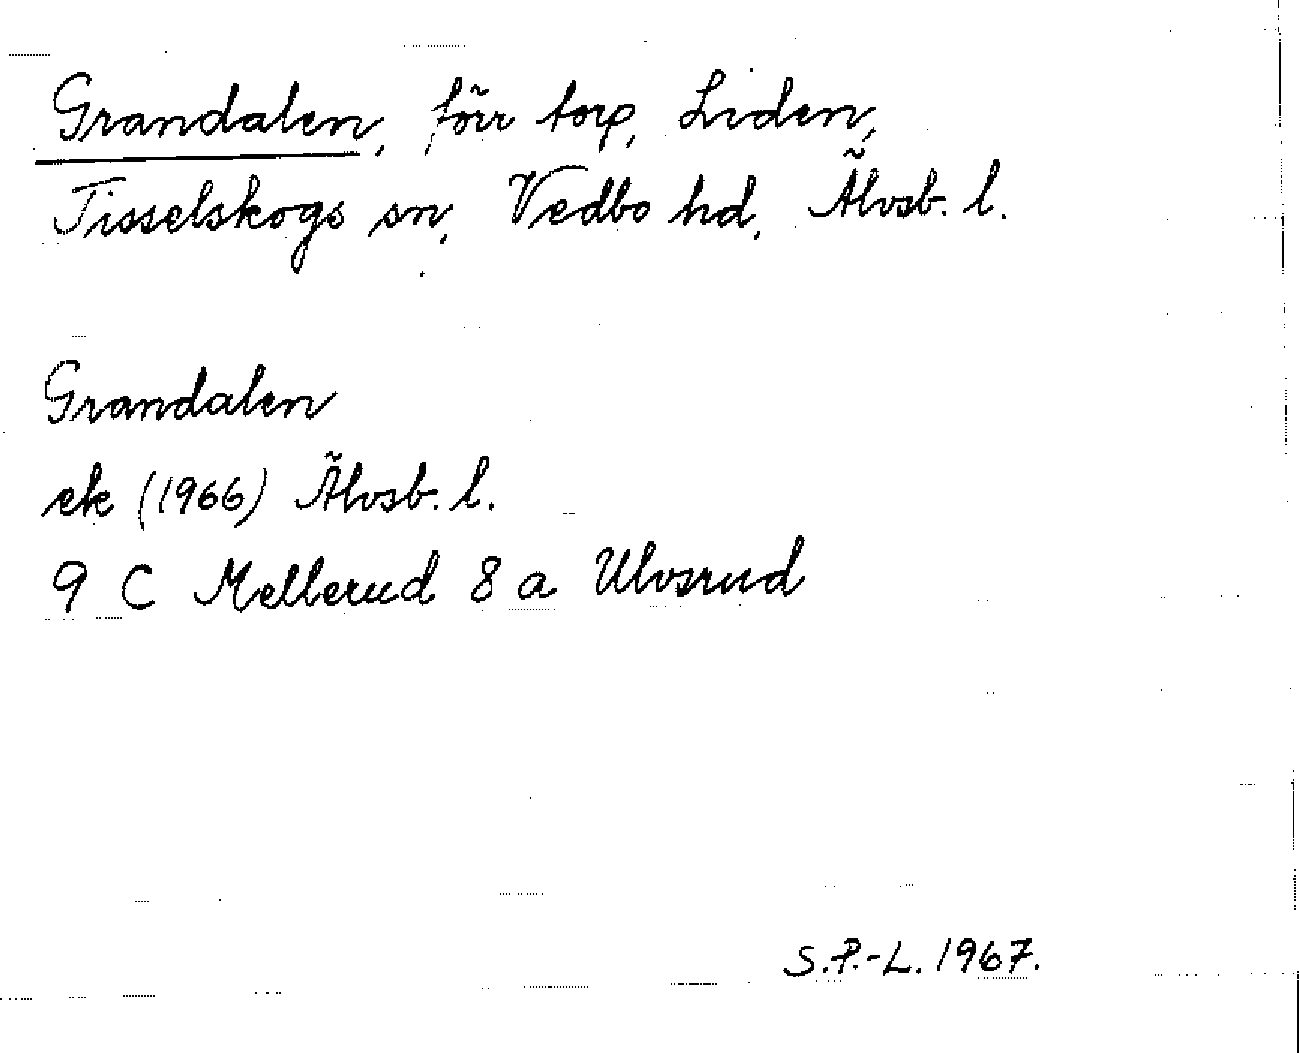 Grandalen, förr torp, Liden,
Tisselskogs sn, Vedbo hd, Älvsb. l.
Grandalen
ek (1966) Älvsb. l.
9 C Mellerud 8 a Ulvsrud
S.P.-L. 1967.